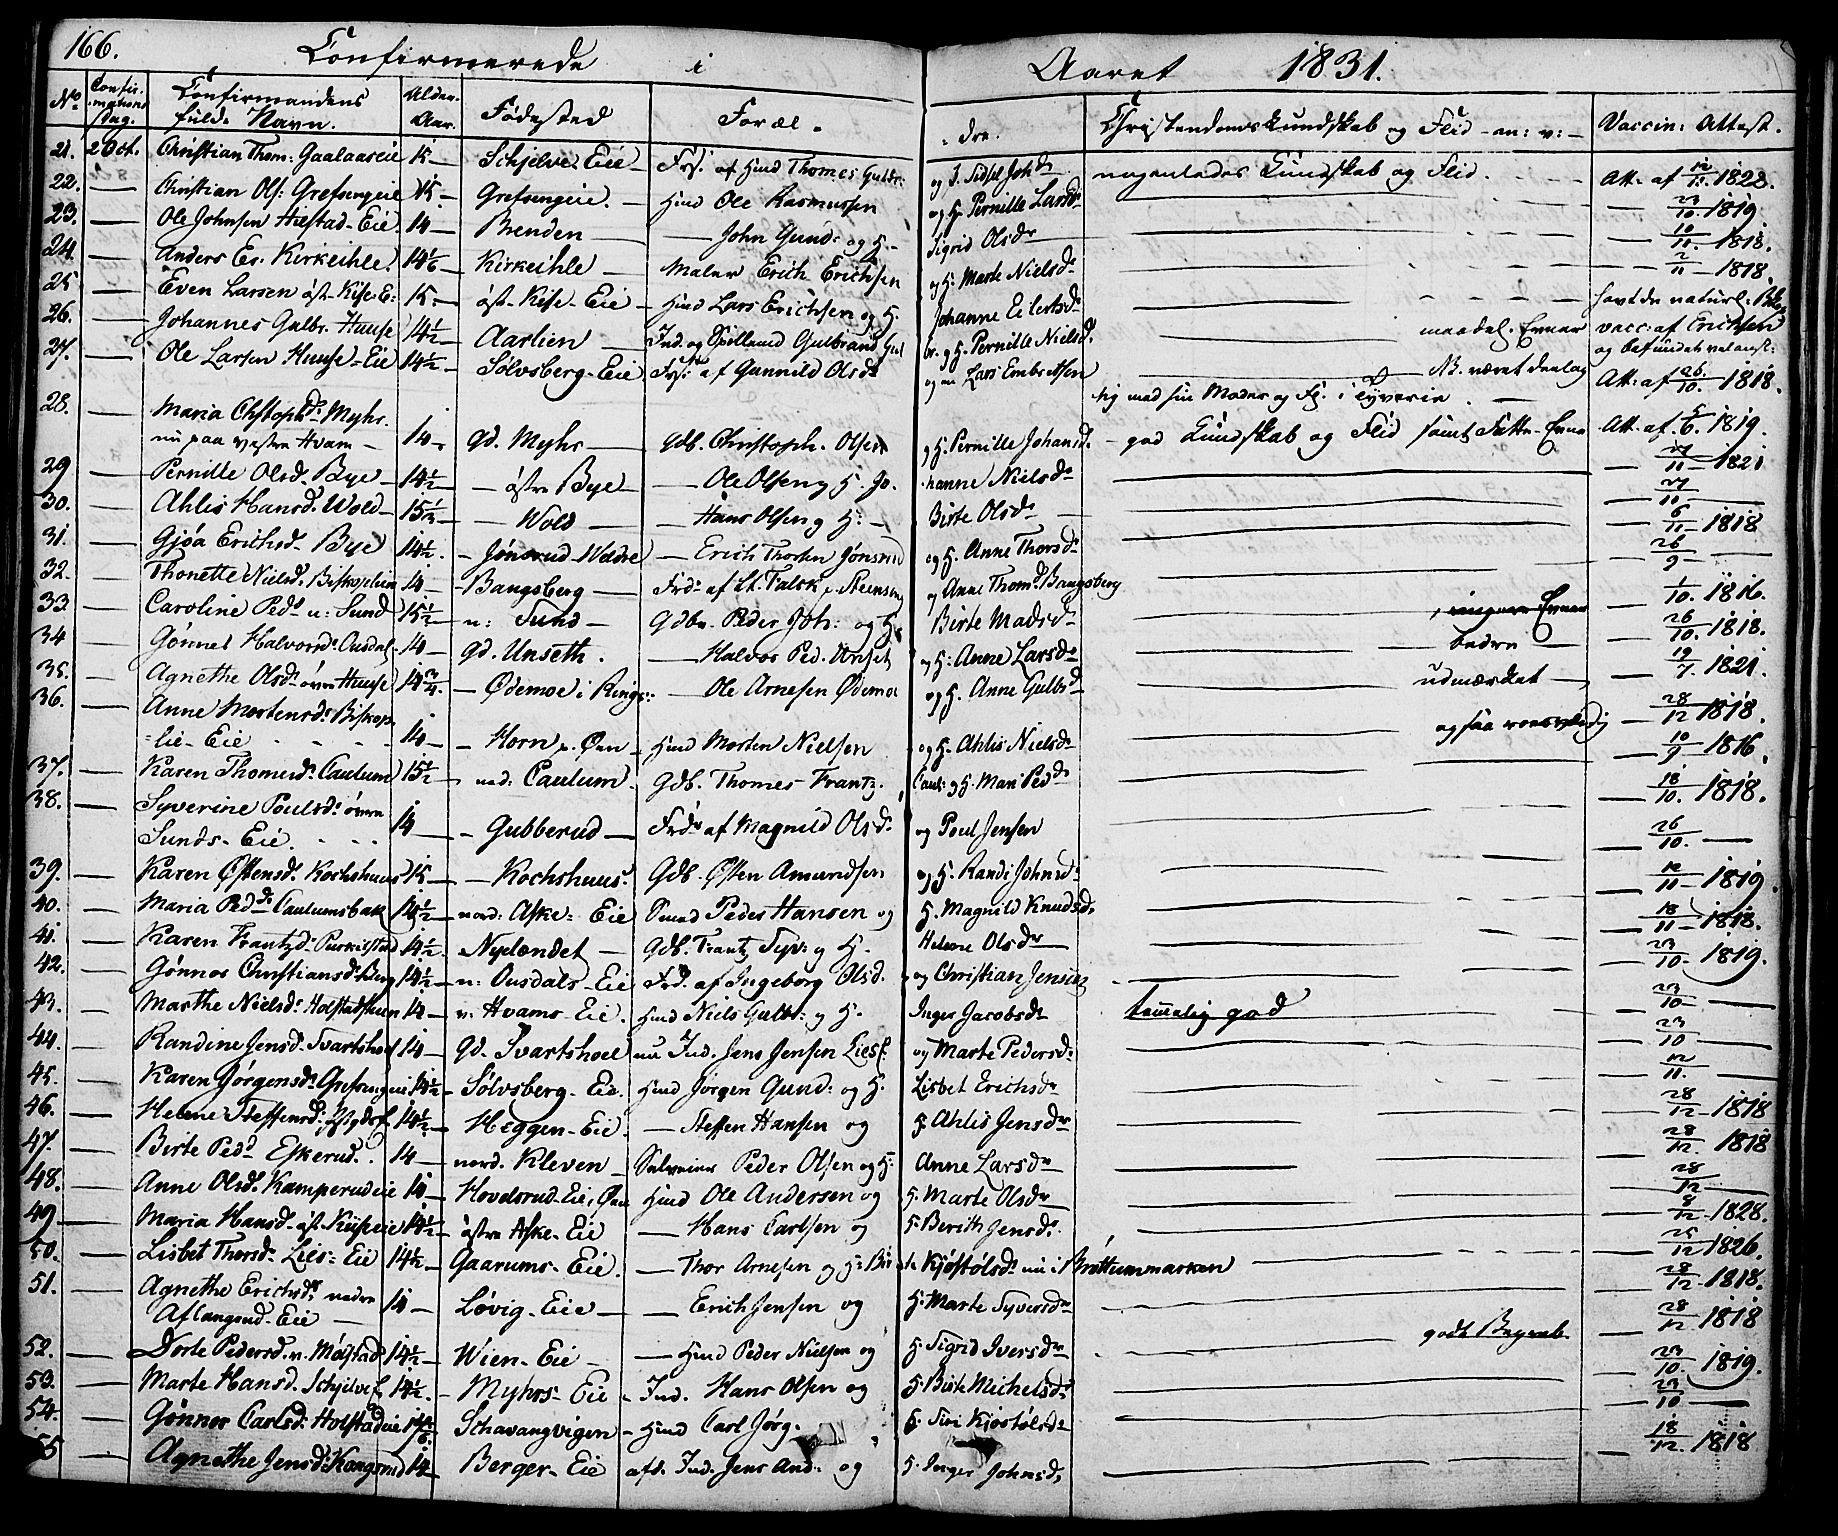 166. Confirmerede i Aaret 1831.
No. Confirmations Dag. Confirmandens fulde Navn. Alder. Aar. Fødested Foræl- dre. Christendomskundskab og Flid -an: v:- Vaccin: Attest.
21. 2 Oct. Christian Thom: Gaalaaseie 15 - Schjelve Eie - Frs: af Hmd Thomes Guldbr: og P. Sidsel Johd: nogenledes Kundskab og Flid Att: af 1828.
22. Christian Ols: Grefsengeie 15 - Grefsengeie. Hmd Ole Rasmussen og H. Pernille Larsd: 23/10 1819.
23. Ole Johnsen Hulstad-Eie 14 - Brenden - John Gund: og H. Sigrid Olsdr 10/11. 1818.
24. Anders Er. Kirkeihle. 14 1/6 - Kirkeihle - Maler Erich Erichsen og H. Marte Nielsd. 2/11 - 1818.
25 Even Larsen øst-Kise-E: 15 - øst-Kise-Eie - Hmd Lars Erichsen og H. Johanne Eilertsd: havt de naturl:
26. Johannes Gulbr. Huuse 14 1/2 - Aarlien - Ind. og Gulbrand og H. Pernille Nielsd. maadel. Evner vacc: af Erichsen
27. Ole Larsen Huuse-Eie 14 1/2 - Sølvsberg-Eie Frs: af Gunnild Olsdr og Lars Embretsen NB. været deelag og befundet velanst: Att: af 26/10. 1818.
tig med sin Moder og i Tyverie.
28. Maria Chstophd: Myhr. nu paa vestre Hvam - 14 - Gd. Myhr Gdb. Christoph. Olsen og H. Pernille Johansd. - god Kundskab og Flid samt Evne Att: af 5/6. 1819.
29 Pernille Olsd. Bye 14 1/2 - østre Bye - Ole Olsen og H. Jo- hanne Nielsdr 27/11 - 1821
30. Ahlis Hansd. Wold 15 - Wold - Hans Olsen og H: Birte Olsdr
31. Gjøa Erichsd. Bye 14 1/2. - Jønsrud Waldre - Erich Thorsten Jønsrud og H. Anne Thorsd: 6/11 - 1818
32. Thonette Nielsd. Biskoplien 14 - Bangsberg - Frd: af Lt. Falck, Steensen og Anne Thomd. Bangsberg 26/9
33. Caroline Ped: n: Sund 15 1/2 - n: Sund - Gdbr. Peder Joh: og H. Birte Madsdr 1/10. 1816.
34 Gønner Halvorsd. Ousdal 14 - Gd. Unseth. - Halvor Ped. Unset og H: Anne Larsdr bedre 26/10. 1818.
35. Agnethe Olsd. øvre Huuse 14 3/4. - Ødemoe i Rings: - Ole Arnesen Ødemoe og H. Anne Gulbd: udmærket - 19/7. 1821.
36. Anne Mortensd: Biskop- lie-Eie 14 - - Horn v. Øen - Hmd Morten Nielsen og H. Ahlis Nielsdr 28/12 1818.
37. Karen Thomesd: Caulum 15 1/2 - ned: Caulum. Gdb. Thomes Frantz. Caul: og H. Mari Pedd: 10/9 1816.
38. Syverine Poulsd: øvre Sunds-Eie. 14 - - Gubberud - Frdr af Magnild Olsd: og Poul Jensen 18/10. 1818.
39. Karen Østensd. Kochshuus 15 - Kochshuus. Gdb. Østen Amundsen og H. Randi Johnsd: 26/10.
40. Maria Pedd: Caulumsbak 14 1/2 - nord: Aske-Eie Peder Hansen og H. Magnild Knudsd. 12/11 - 1819.
41. Karen Frantzd: Purkilstad 14 1/2. Nylændet - Gdb. Frantz Syv: og H. Helene Olsdr 18/11 - 1818.
42. Gønnor Christiansd. Berg 14 1/2 - n: Ousdals-Eie Frd: af Ingeborg Olsd. og Christian Jensen 23/10 - 1819.
43. Marthe Nielsd. Holstadskuen 14 - v: Hvams-Eie. Hmd Niels Gulbr: og H. Inger Jacobsdr temmelig god 23/10
44. Randine Jensd. Svartshoel 14 - Gd. Svartshoel nu Ind. Jens Jensen Lies og Marte Pedersd: 23/10
45. Karen Jørgensd: Grefsengeie 14 1/2 - Sølvsberg-Eie. Hmd Jørgen Gund: og H. Lisbet Erichsdr 12/11.
46. Helene Steffensd: 14 1/2. - Heggen-Eie - Steffen Hansen og H. Ahlis Jensdr 28/12 - 1818
47. Birte Pedd Eskerud. 14 - nord. Kleven - Peder Olsen og H: Anne Larsdr 28/12. 1818
48. Anne Olsd. Kamperudeie 14 - Hovelsrud-Eie, Øen Hmd Ole Andersen og H. Marte Olsdr 28/12
49 Maria Hansd. øst-Kiseeie 14 1/2 - østre Aske-Eie - Hans Carlsen og H. Berith Jensd: 8/12 - 1828.
50. Lisbet Thorsd. Lies-Eie 14 1/2 - Gaarums-Eie. - Thor Arnesen og H: Bir- te Kjøstølsd: nu i Brøttummarken 25/12 1826.
51. Agnethe Erichsdr nedre Aflangrud-Eie 14 - Løvig-Eie - Erich Jensen og H. Marte Syversdr 28/12 - 1818.
52. Dorte Pedersd. v. Møistad 14 1/2 - Wien-Eie - Hmd Peder Nielsen og H. Sigrid Iversdr godt Begreb. 28/12 1818
53. Marte Hansd. Schjelve E. 14 1/2. - Myhrs-Eie - Ind. Hans Olsen og H. Birte Michelsd: 23/10. 1819.
54. Gønnor Carlsd: Holstadeie - Schavangvigen - Hmd Carl Jørg. H. Siri Kjøstølsdr 23/10
55 Agnethe Jensd: Kangsrud 14 - Berger-Eie afd. Ind. Jens And: og H. Inger Johnsd: 18/12. 1818